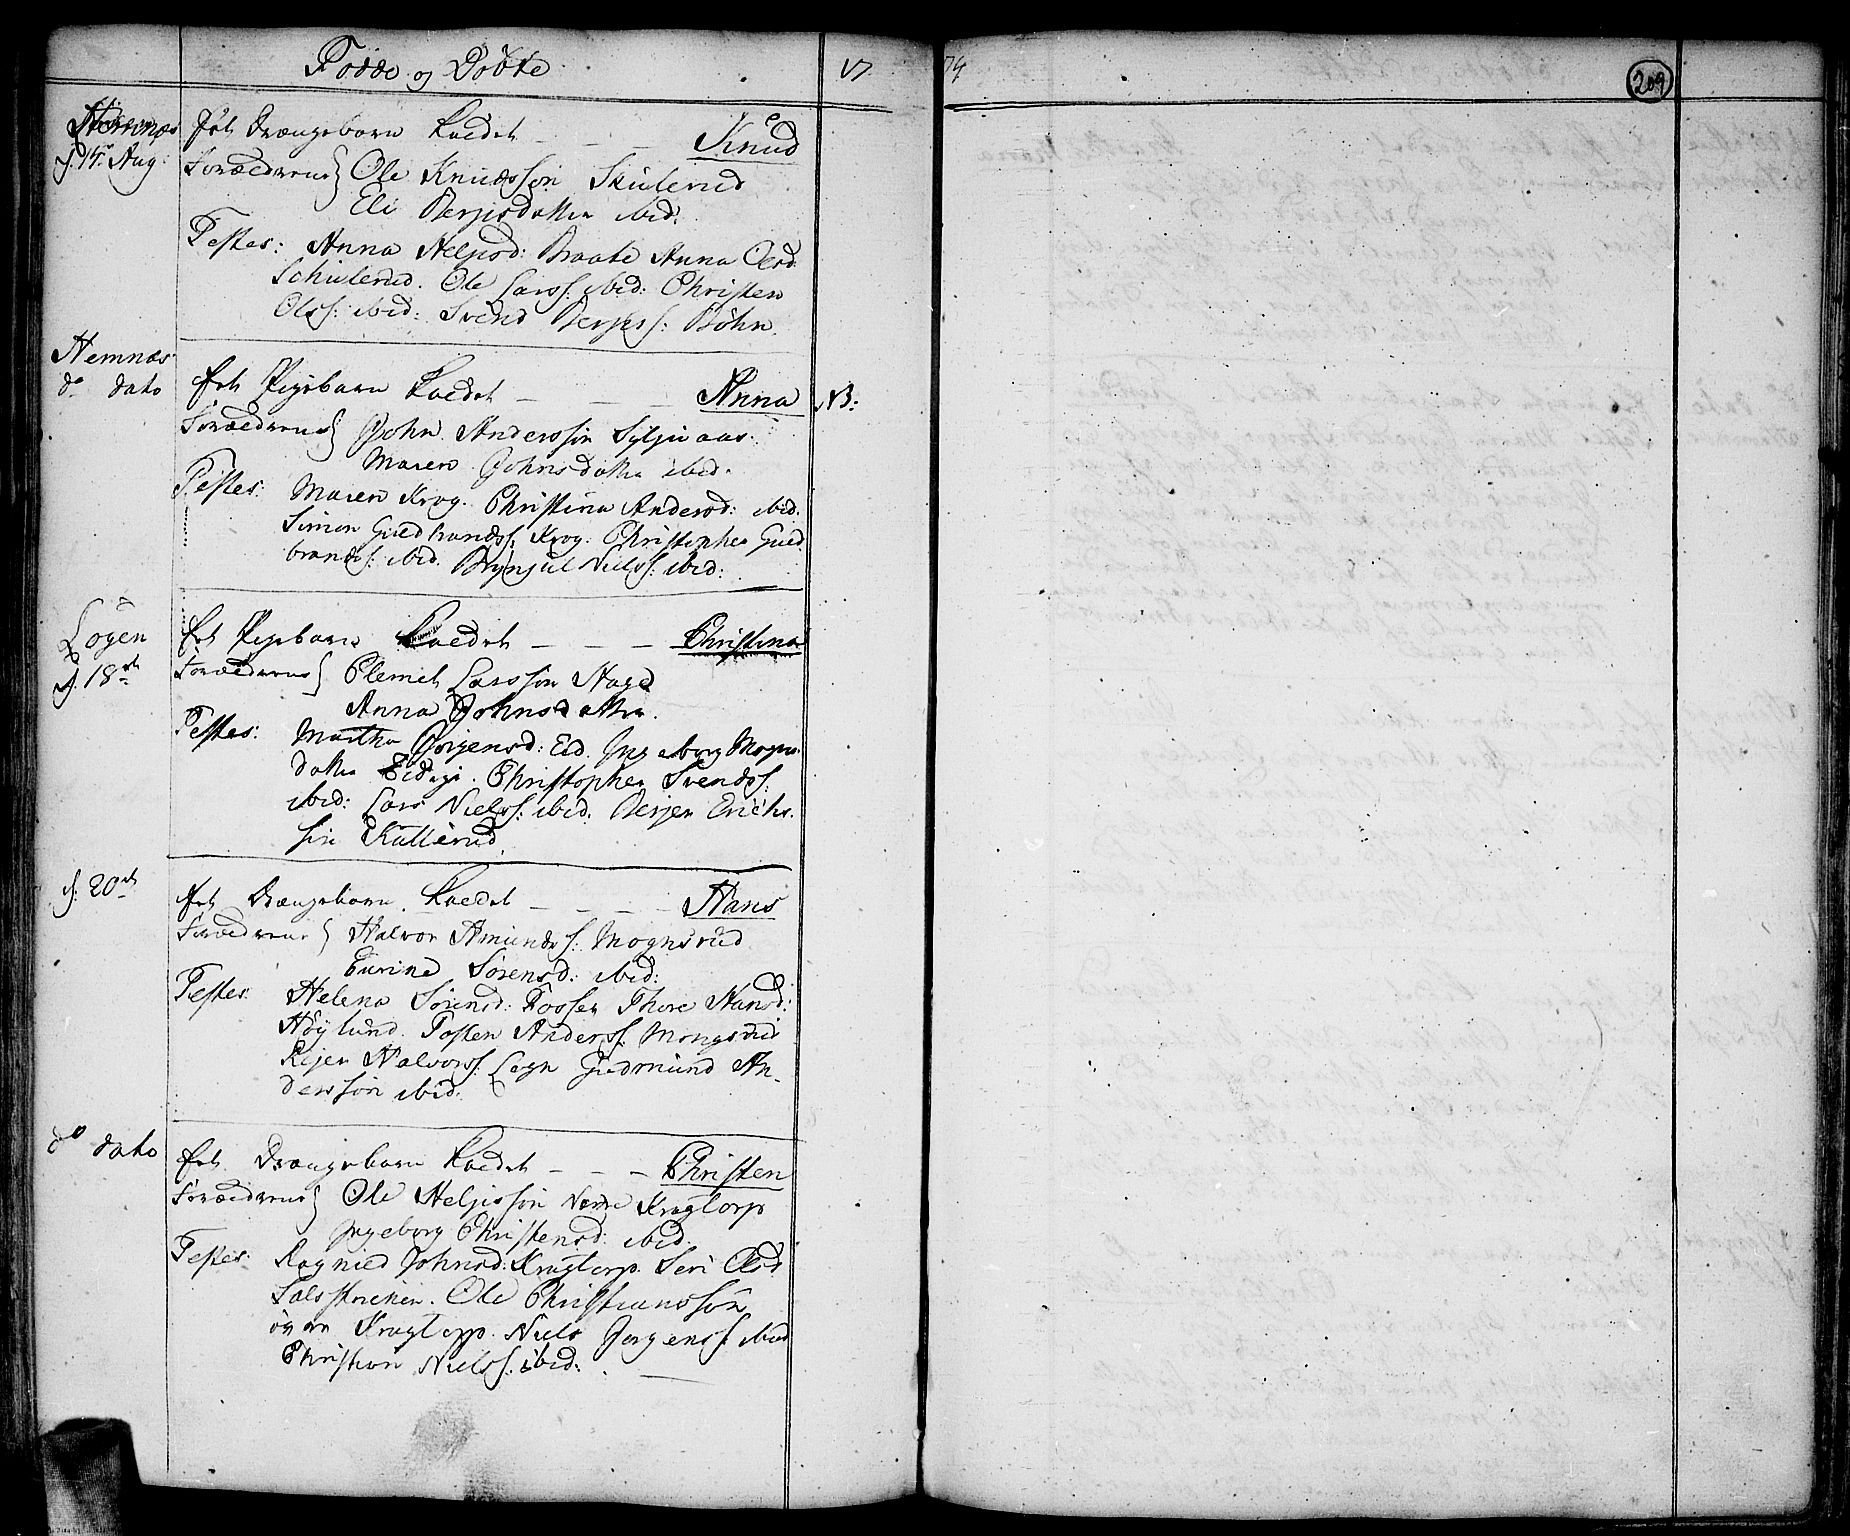 Födde og Döbte
17
74
209
Hemnæs
d. 14. Aug:
Et Drængebarn kaldet - - - Knud
Forældrene } Ole Knudssön Skulerud
Eli Børjesdatter ibid:
Testes: Anna Helgesd: Braate Anna Olsd
Schulerud. Ole Larss: ibid: Christen
Olss: ibid: Svend Børjess: Böhn.
Hemnæs
do dato
Et Pigebarn kaldet - - - Anna
NB:
Forældrene } John Anderssön Syljuaas
Maren Johnsdatter ibid.
Testes: Maren Krog. Christina Andersd: ibid.
Simen Guldbrandss: Krog. Christopher Guld
brandss: ibid. Brynjul Nielss: ibid:
Lögen
d. 18de
Et Pigebarn kaldet - - - Christina
Forældrene } Clemet Larssön Hage
Anna Johnsdatter.
Testes: Martha Jörgensd: Eid. Ingeborg Mogns
datter Eidegi. Christopher Svendss:
ibid: Lars Nielss: ibid. Børjer Erichs.
sön Kulterud.
d. 20de
Et Drængebarn kaldet - - - Hans
Forældrene } Halvor Amundss: Mognsrud
Gurine Sörensd: ibid:
Testes: Helena Sörensd: Fosser Thore Hansd:
Höylund. Tosten Anderss: Mongsrud
Rejer Halvorss: Legn Gudmund An-
derssön ibid.
do dato
Et Drængebarn kaldet - - - Christen
Forældrene } Ole Helgessön Nerre Krogtorp
Ingeborg Christensd: ibid.
Testes: Rognild Johnsd: Krogtorp. Seri Olsd
Ole Christianssön
övre Krogtorp. Niels Jörgenss: ibid
Christian Nielss: ibid: